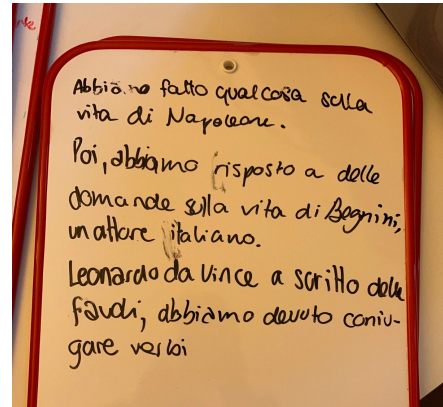 Abbiamo fatto qualcosa sulla
vita di Napoleone.
Poi, abbiamo risposto a delle
domande sulla vita di Begnini,
un attore italiano.
Leonardo da Vince a scritto delle
favoli, abbiamo devuto coniu-
gare verbi